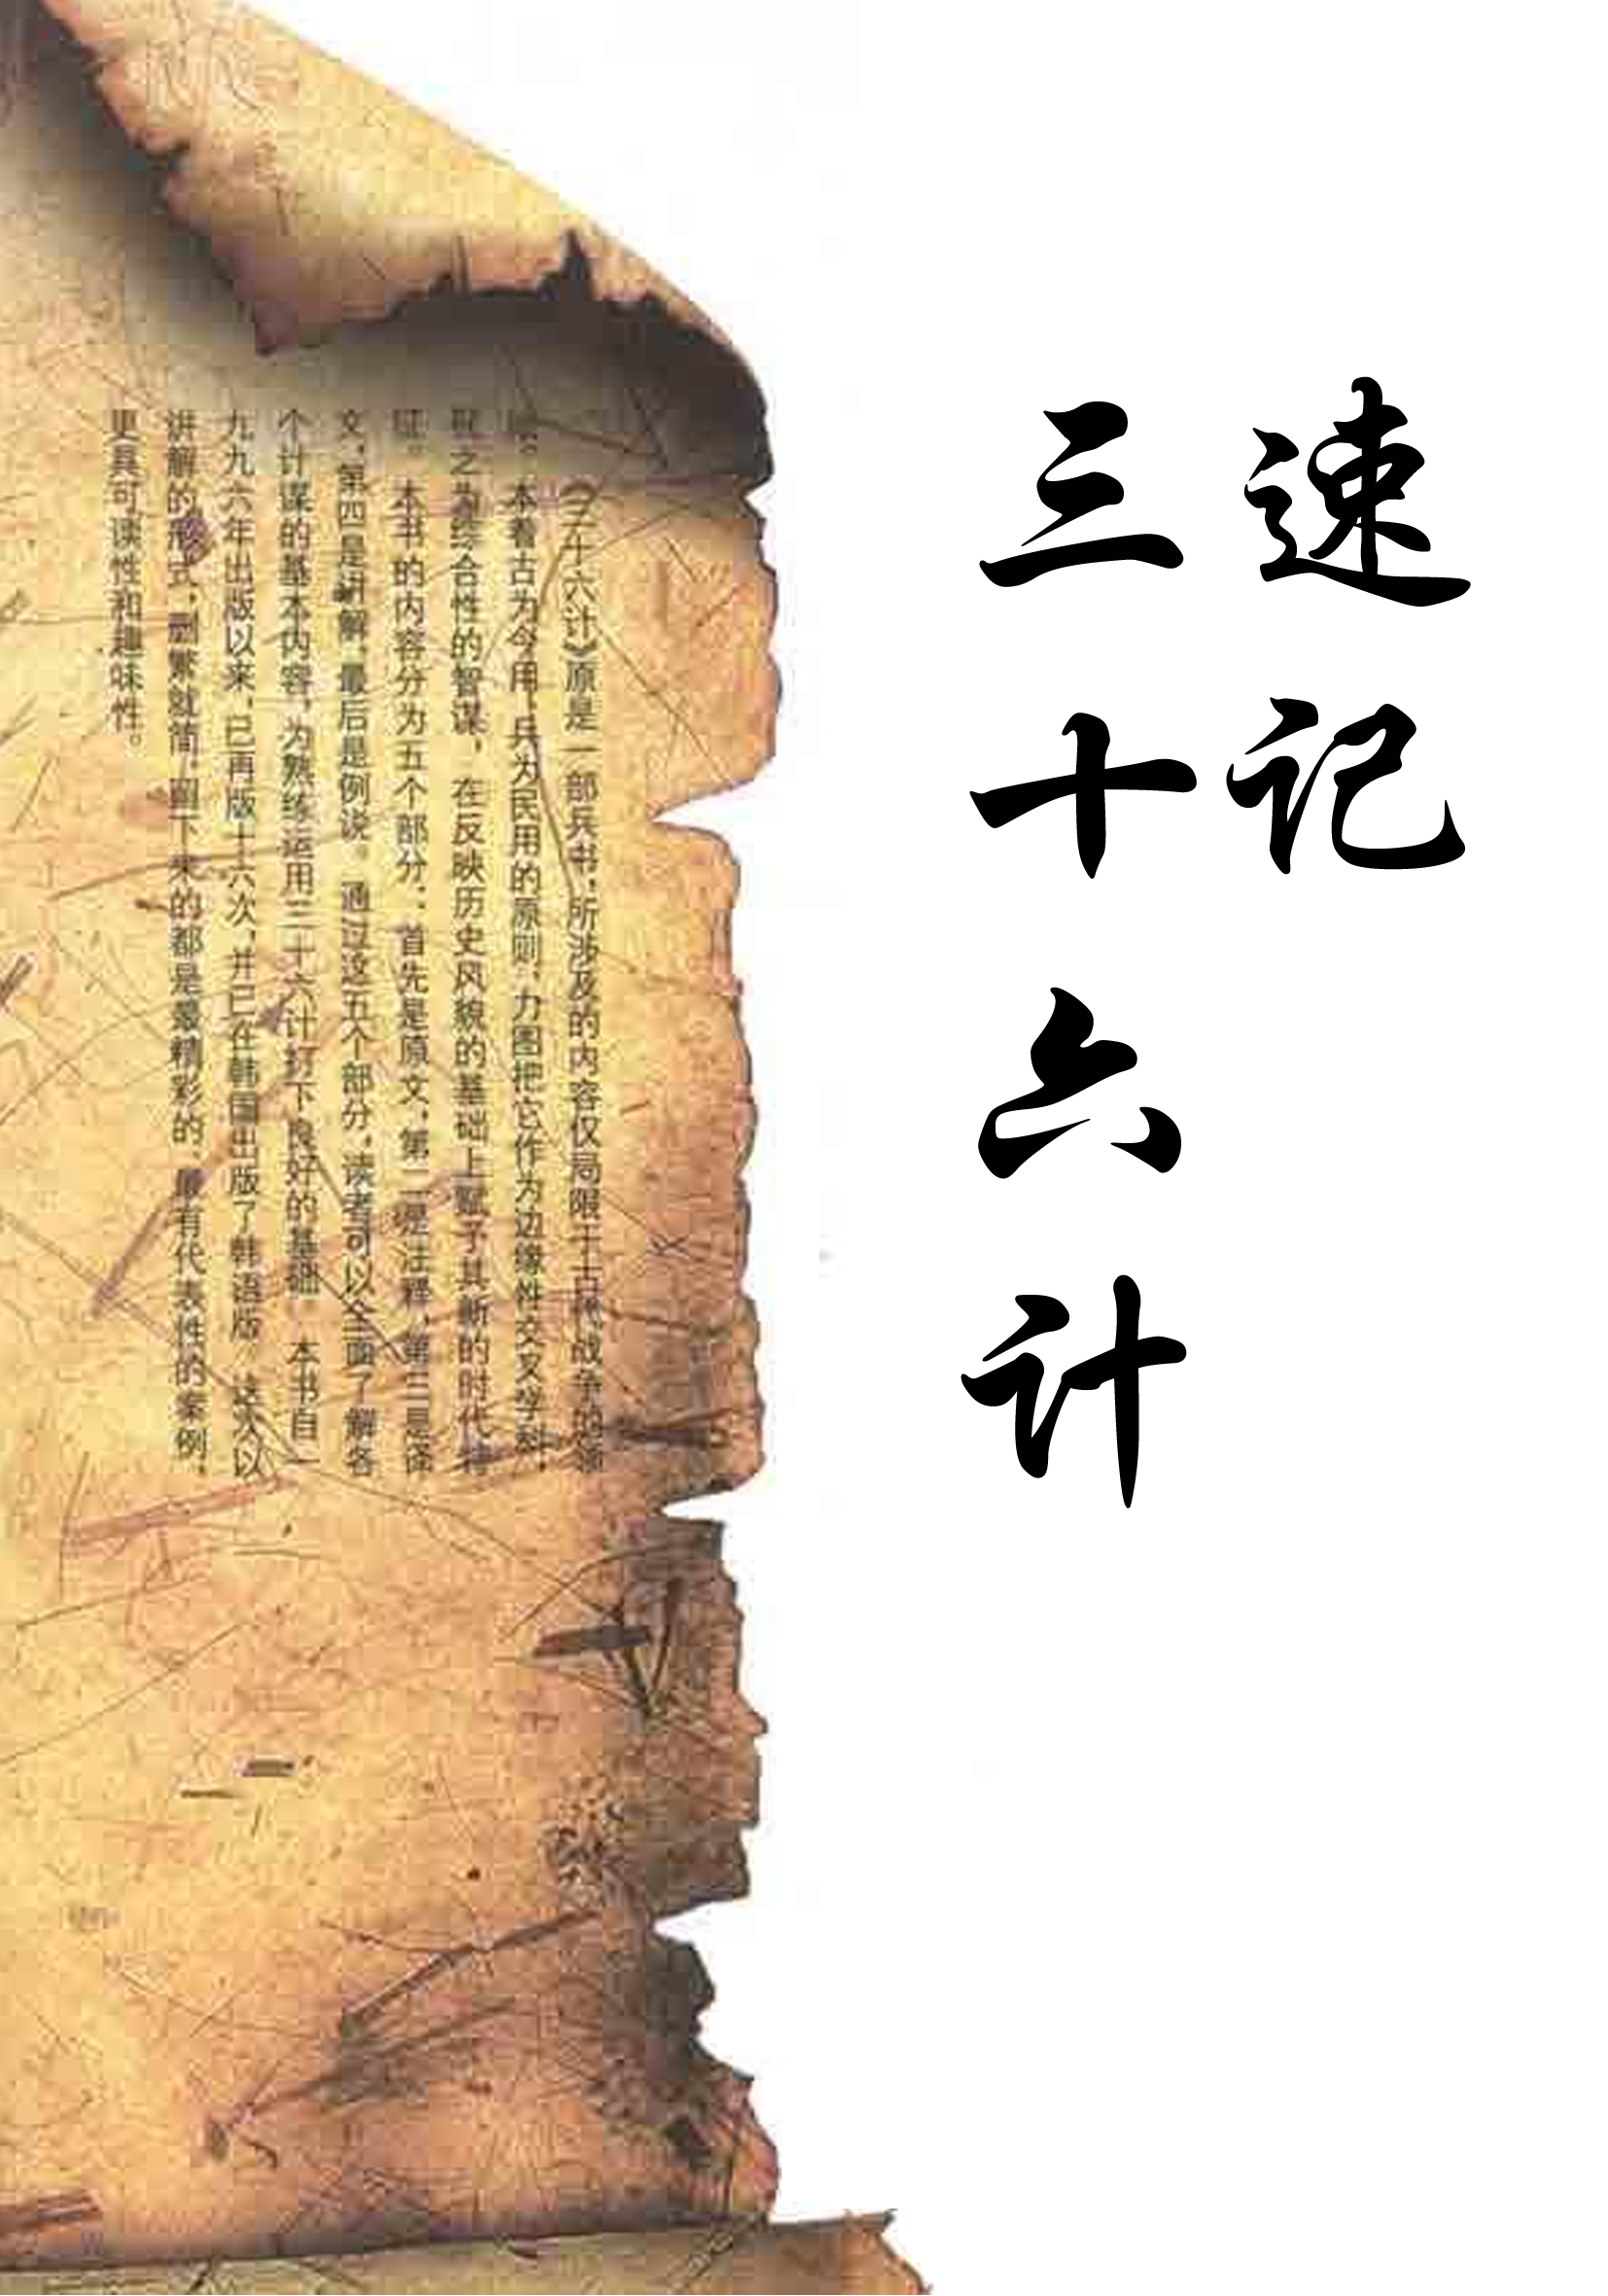 速记
三十六计
《三十六计》原是一部兵书，所涉及的内容仅局限于古代战争的
。本着古为今用、兵为民用的原则，力图把它作为边缘性交叉学科，
之为综合性的智谋，在反映历史风貌的基础上赋予其新的时代特
征。本书的内容分为五个部分：首先是原文，第二是注释，第三是译
文，第四是讲解，最后是例说。通过这五个部分，读者可以全面了解各
个计谋的基本内容，为熟练运用三十六计打下良好的基础。本书自一
九九六年出版以来，已再版十六次，并已在韩国出版了韩语版。这次以
讲解的形式，删繁就简，留下来的都是最精彩的、最有代表性的案例，
更具可读性和趣味性。